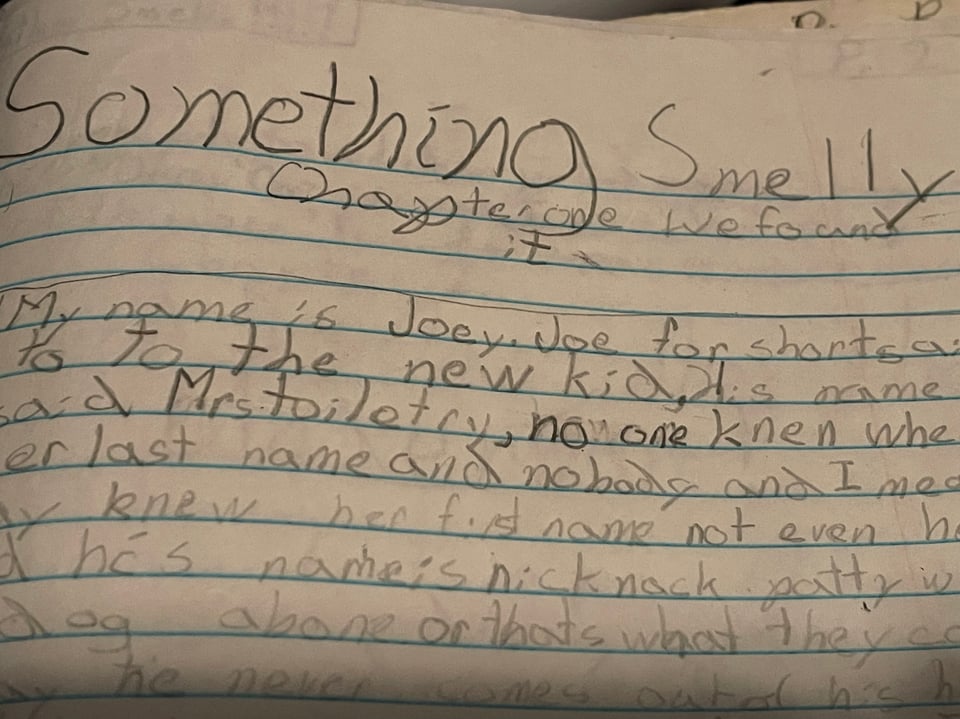 Something Smelly
Chapter one We found
it
My name is Joey. Joe for shorts
to to the new kid, His name
said Mrs. toiletry, no one knen whe
er last name and nobody and I mea
knew her first name not even he
d he's name is nick nack patty w
dog abone or thats what they ca
he never comes out of his h